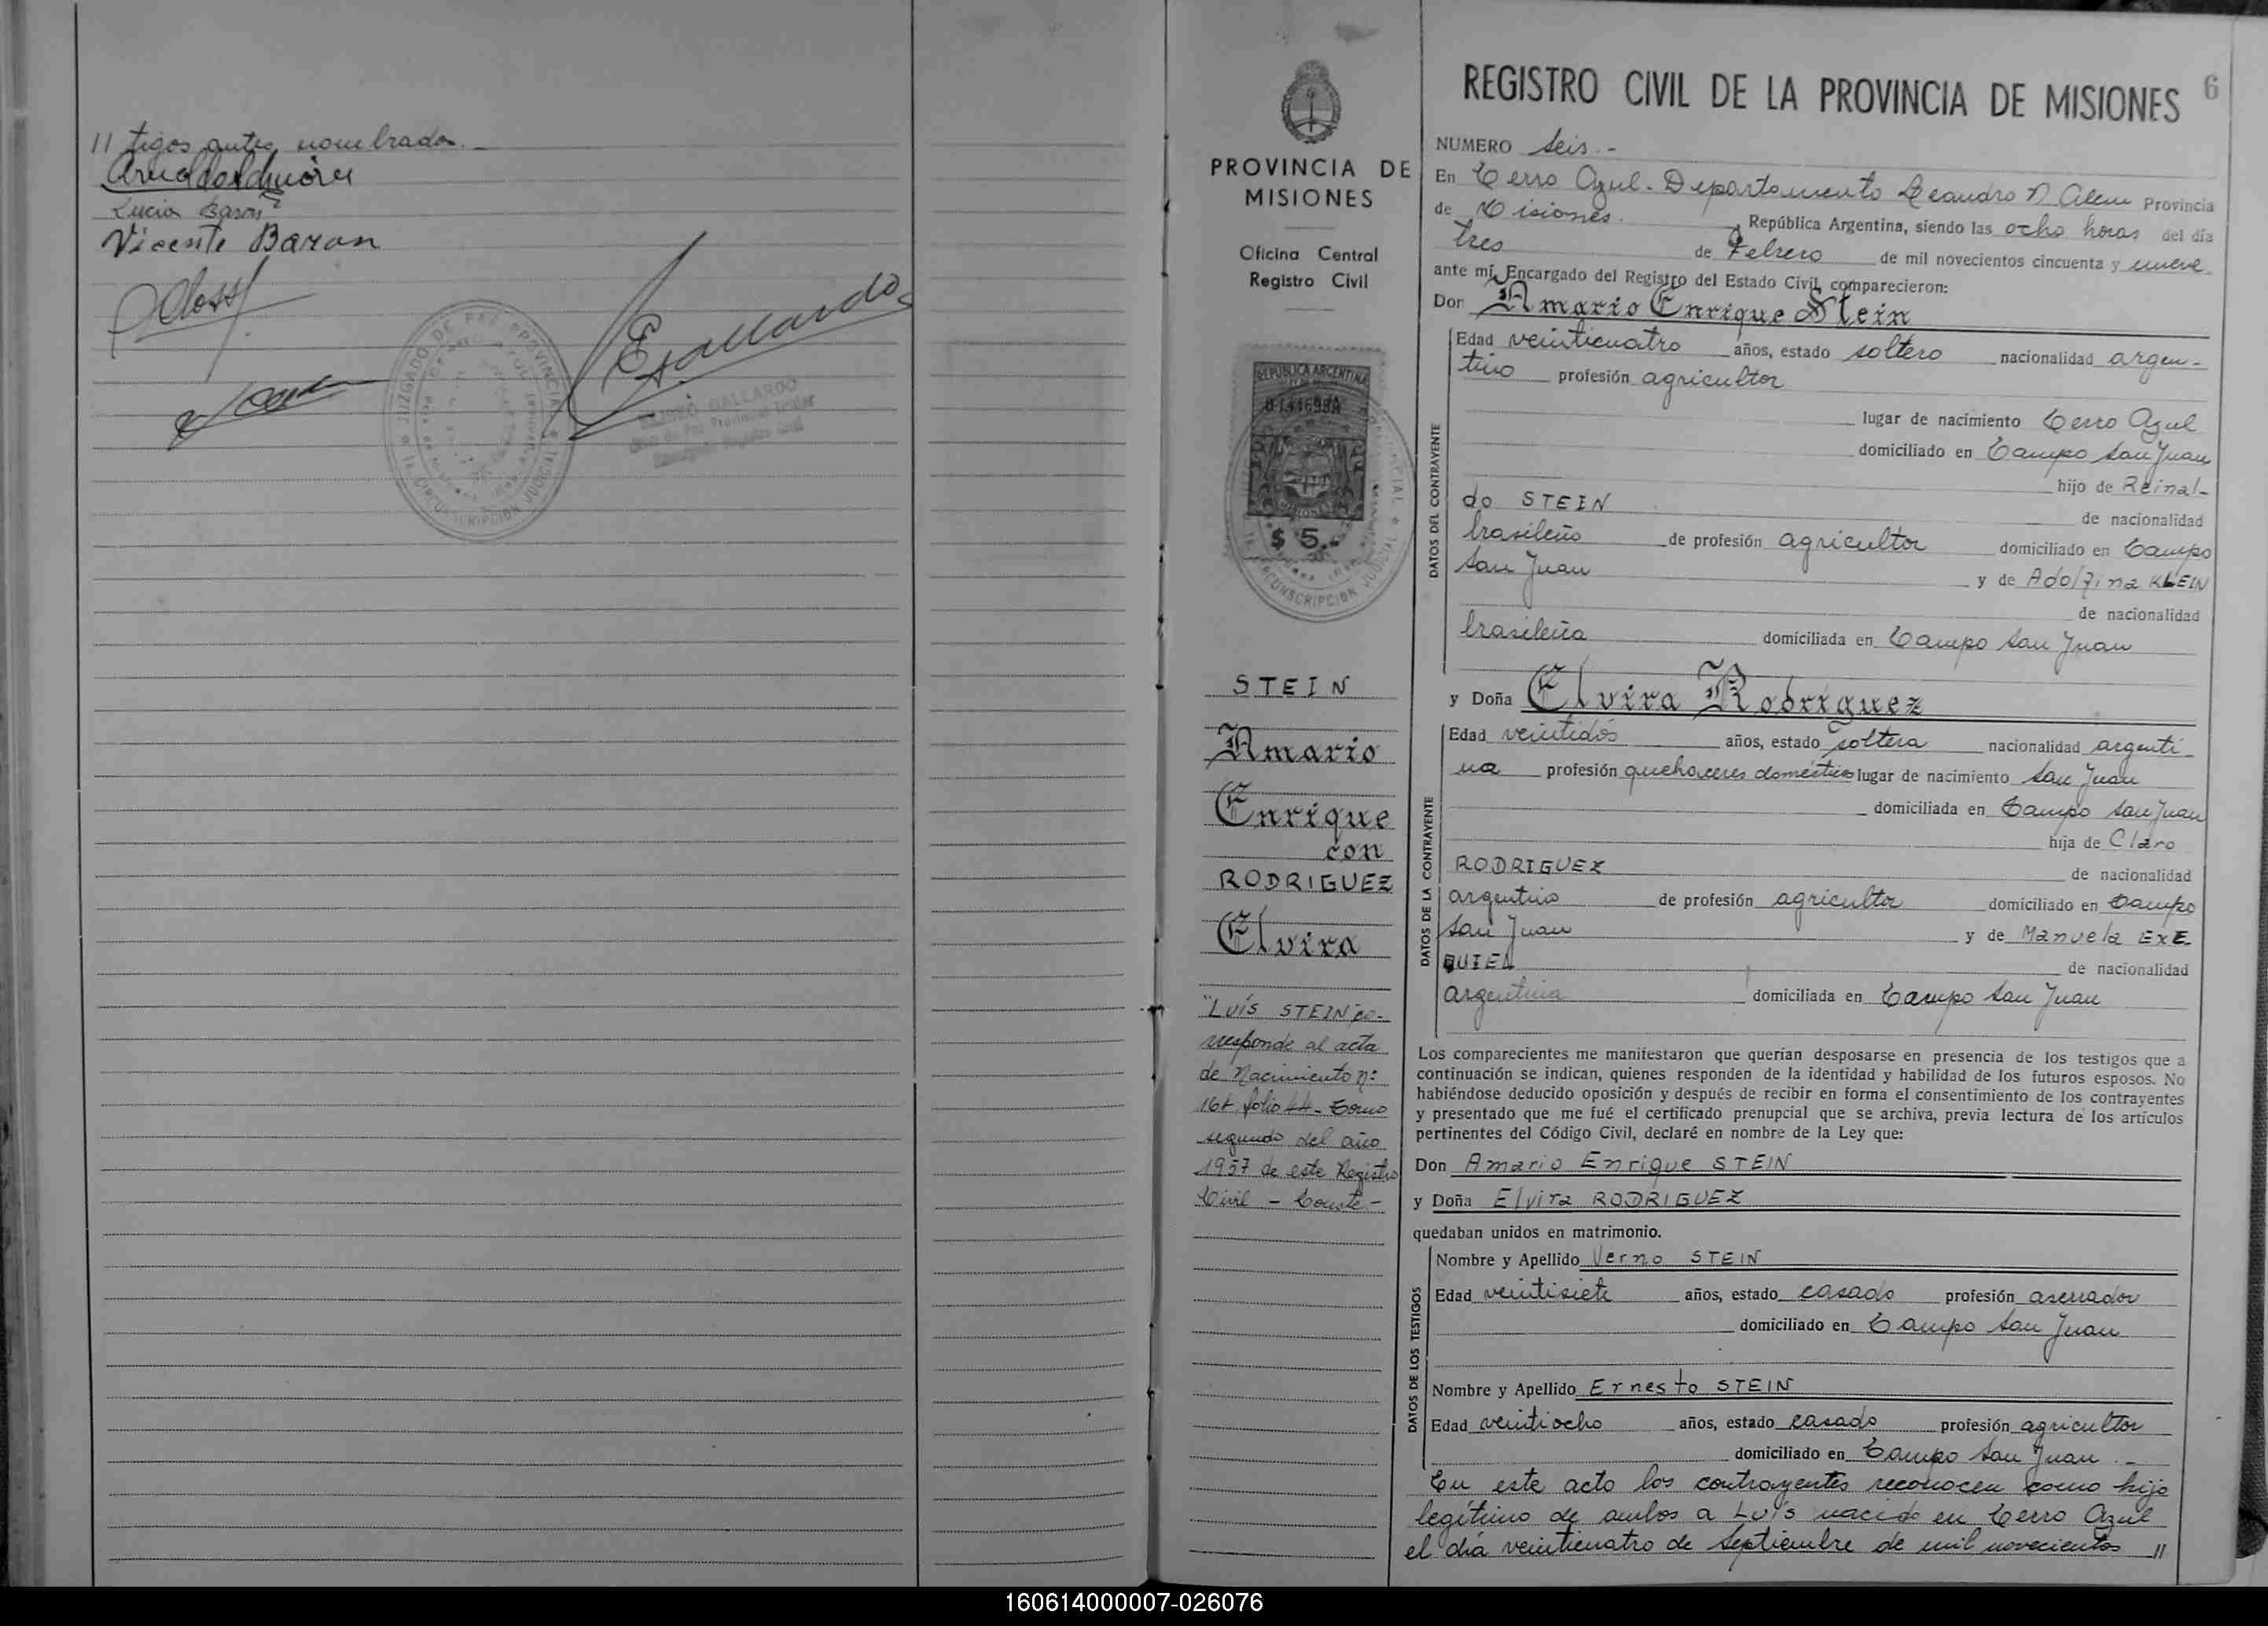 // tigos antes nombrados.-
Lucia Baron
Vicente Baran
JUZGADO DE PAZ PROVINCIAL
CIRCUNSCRIPCION JUDICIAL
EGallardo
GALLARDO
Juez de Paz Provincial Titular
Encargado Registro Civil
PROVINCIA DE
MISIONES
Oficina Central
Registro Civil
REPUBLICA ARGENTINA
MISIONES
$ 5.-
CIRCUNSCRIPCION JUDICIAL
STEIN
Amario
Enrique
con
RODRIGUEZ
Elvira
"LUÍS STEIN" co-
rresponde al acta
de Nacimiento Nº:
folio 44 - Tomo
segundo del año
1957 de este Registro
Civil - Conste.-
REGISTRO CIVIL DE LA PROVINCIA DE MISIONES 6
NUMERO Seis.-
En Cerro Azul - Departamento Leandro N Alem Provincia
de Misiones. República Argentina, siendo las ocho horas del día
tres de Febrero de mil novecientos cincuenta y nueve.
ante mi, Encargado del Registro del Estado Civil, comparecieron:
Don Amario Enrique Stein
DATOS DEL CONTRAYENTE
Edad veinticuatro años, estado soltero nacionalidad argen-
tino profesión agricultor
lugar de nacimiento Cerro Azul
domiciliado en Campo San Juan
hijo de Reinal-
do STEIN de nacionalidad
brasileño de profesión agricultor domiciliado en Campo
San Juan y de Adolfina KLEIN
de nacionalidad
brasileña domiciliada en Campo San Juan
y Doña Elvira Rodriguez
DATOS DE LA CONTRAYENTE
Edad veintidós años, estado soltera nacionalidad argenti
na profesión quehaceres domésticos lugar de nacimiento San Juan
domiciliada en Campo San Juan
hija de Claro
RODRIGUEZ de nacionalidad
argentino de profesión agricultor domiciliado en Campo
San Juan y de Manuela EXE
QUIEL de nacionalidad
argentina domiciliada en Campo San Juan
Los comparecientes me manifestaron que querían desposarse en presencia de los testigos que a
continuación se indican, quienes responden de la identidad y habilidad de los futuros esposos. No
habiéndose deducido oposición y después de recibir en forma el consentimiento de los contrayentes
y presentado que me fué el certificado prenupcial que se archiva, previa lectura de los artículos
pertinentes del Código Civil, declaré en nombre de la Ley que:
Don Amario Enrique STEIN
y Doña Elvira RODRIGUEZ
quedaban unidos en matrimonio.
DATOS DE LOS TESTIGOS
Nombre y Apellido Verno STEIN
Edad veintisiete años, estado casado profesión aserrador
domiciliado en Campo San Juan
Nombre y Apellido Ernesto STEIN
Edad veintiocho años, estado casado profesión agricultor
domiciliado en Campo San Juan.-
En este acto los contrayentes reconocen como hijo
legítimo de ambos a Luís nacido en Cerro Azul
el día veinticuatro de Septiembre de mil novecientos //
160614000007-026076